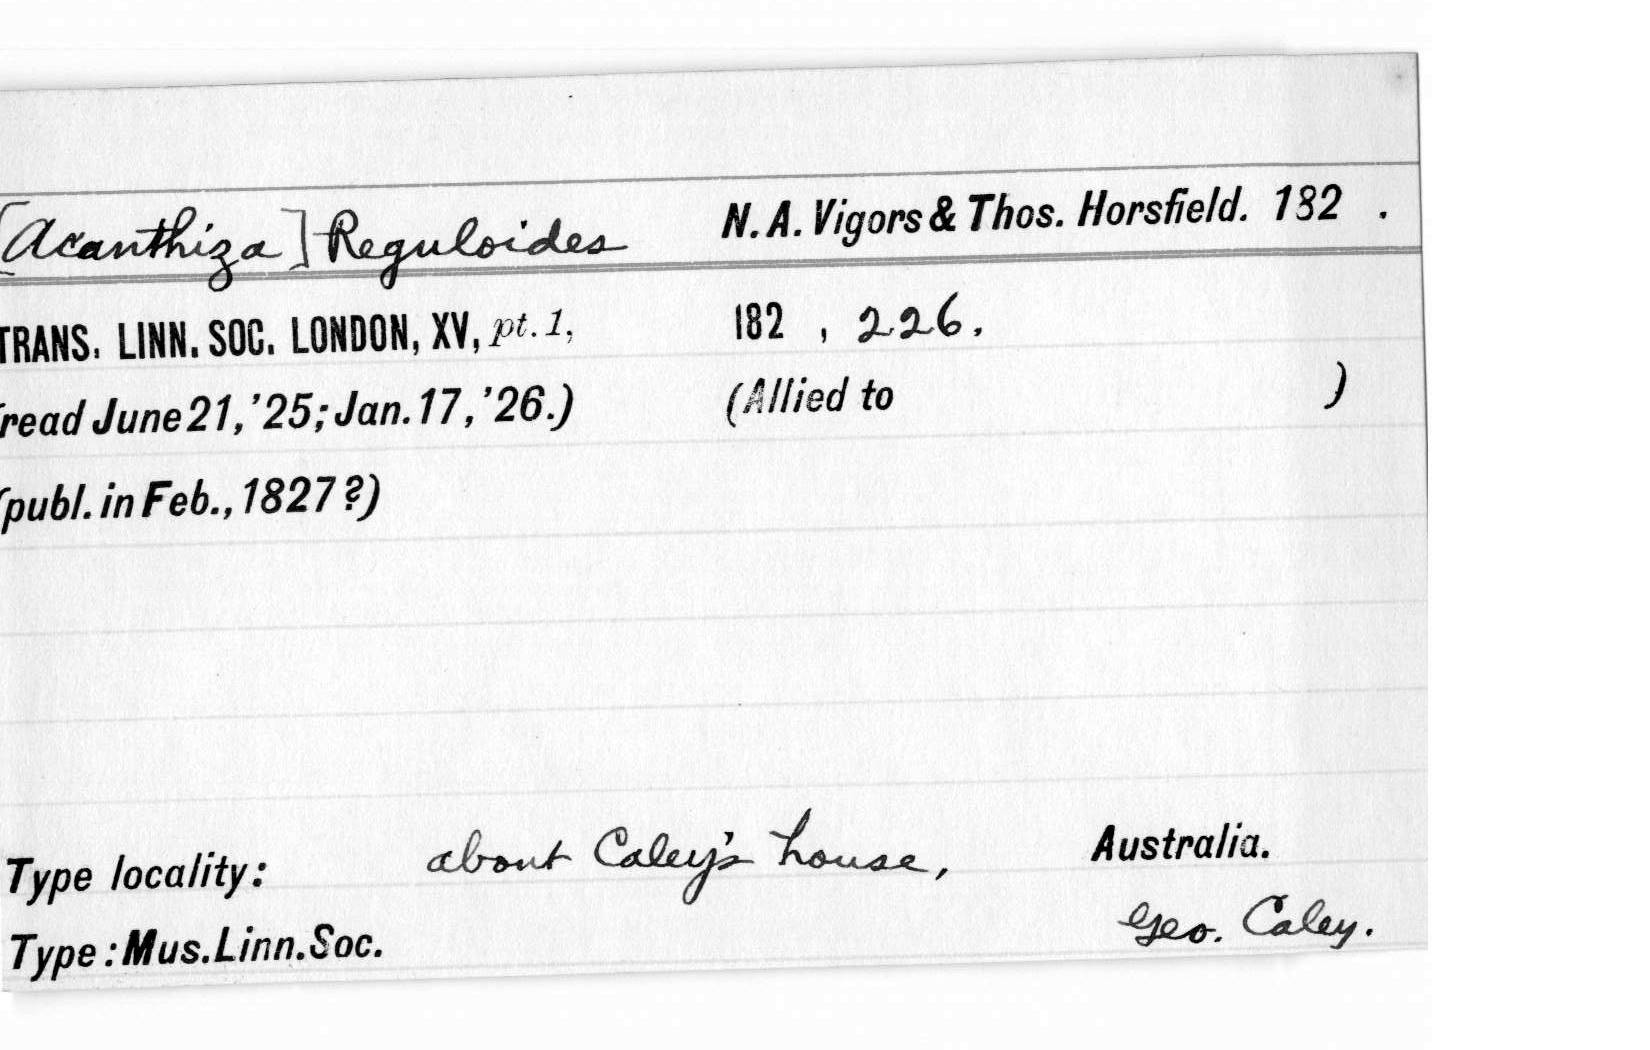 [Acanthiza] Reguloides N. A. Vigors & Thos. Horsfield. 182 .
TRANS. LINN. SOC. LONDON, XV, pt. 1, 182 , 226.
(read June 21, '25; Jan. 17, '26.) (Allied to )
(publ. in Feb., 1827?)
Type locality: about Caley's house, Australia.
Type: Mus. Linn. Soc. Geo. Caley.